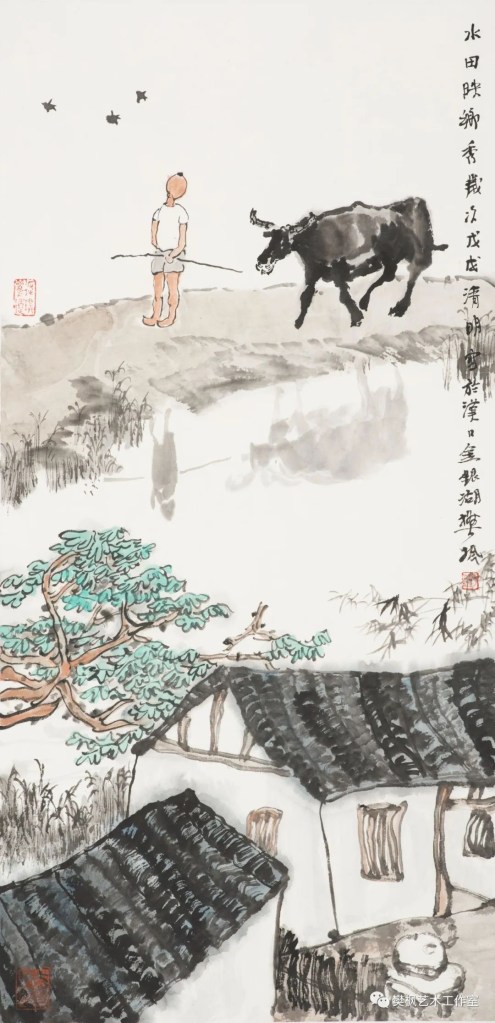 水田映乡秀岁次戊戌清明写於汉口金银湖樊枫
樊枫艺术工作室